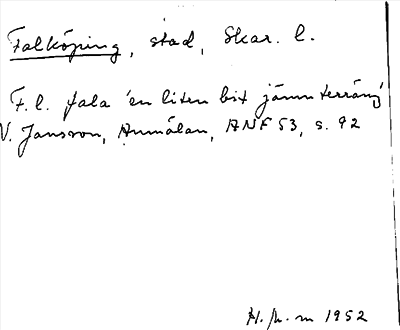 Falköping, stad, Skar. l.
F. l. fala 'en liten bit jämn terräng'
V. Jansson, Anmälan, ANF 53, s. 92
1952